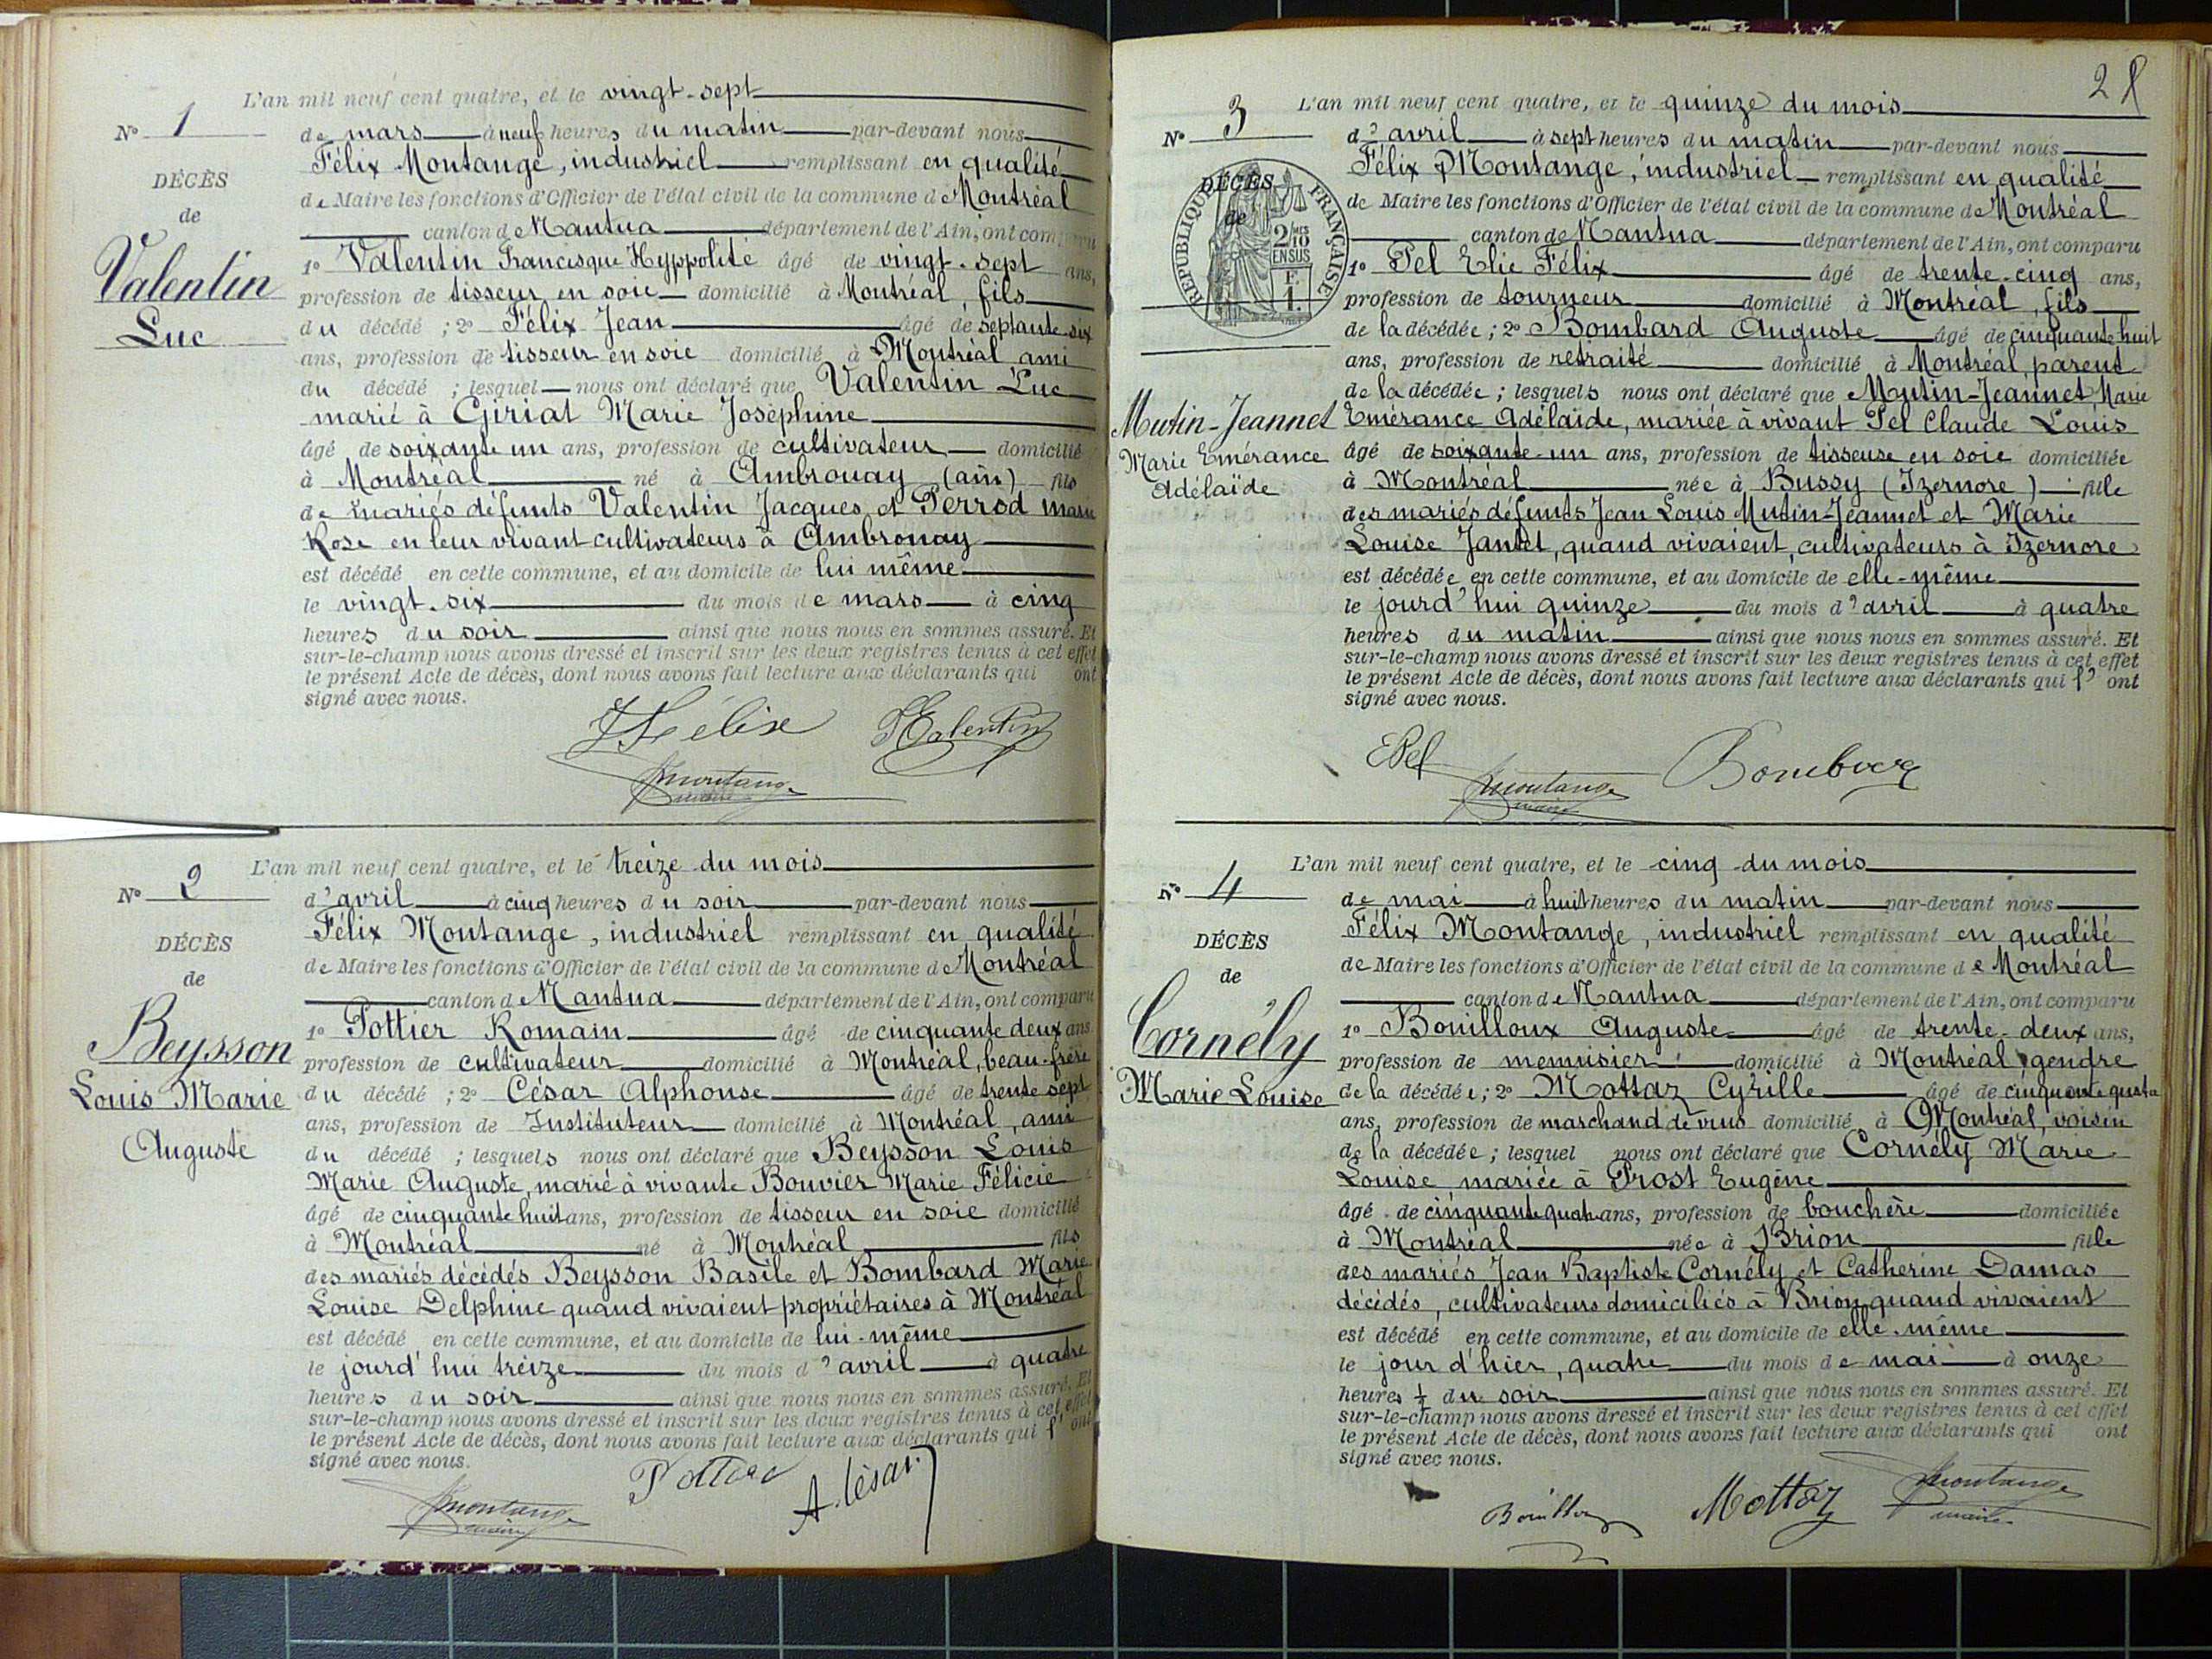 L'an mil neuf cent quatre, et le vingt-sept
N° 1
de mars à neuf heures du matin par-devant nous
Félix Montange, industriel remplissant en qualité
DÉCÈS
de Maire les fonctions d'Officier de l'état civil de la commune de Montréal
de
canton de Nantua département de l'Ain, ont comparu
Valentin
1° Valentin Francisque Hyppolite âgé de vingt-sept ans,
profession de tisseur en soie domicilié à Montréal, fils
Luc
du décédé ; 2° Félix Jean âgé de septante-six
ans, profession de tisseur en soie domicilié à Montréal ami
du décédé ; lesquel nous ont déclaré que Valentin Luc
marié à Giriat Marie Joséphine
âgé de soixante un ans, profession de cultivateur domicilié
à Montréal né à Ambronay (ain) fils
de mariés défunts Valentin Jacques et Perrod Marie
Rose en leur vivant cultivateurs à Ambronay
est décédé en cette commune, et au domicile de lui même
le vingt-six du mois de mars à cinq
heures du soir ainsi que nous nous en sommes assuré. Et
sur-le-champ nous avons dressé et inscrit sur les deux registres tenus à cet effet
le présent Acte de décès, dont nous avons fait lecture aux déclarants qui ont
signé avec nous.
JFélix Valentin
Montange
maire
L'an mil neuf cent quatre, et le treize du mois
N° 2
d'avril à cinq heures du soir par-devant nous
Félix Montange, industriel remplissant en qualité
DÉCÈS
de Maire les fonctions d'Officier de l'état civil de la commune de Montréal
de
canton de Nantua département de l'Ain, ont comparu
Beysson
1° Pottier Romain âgé de cinquante deux ans
profession de cultivateur domicilié à Montréal, beau-frère
Louis Marie
du décédé ; 2° César Alphonse âgé de trente sept
ans, profession de Instituteur domicilié à Montréal, ami
Auguste
du décédé ; lesquels nous ont déclaré que Beysson Louis
Marie Auguste, marié à vivante Bouvier Marie Félicie
âgé de cinquante huit ans, profession de tisseur en soie domicilié
à Montréal né à Montréal fils
des mariés décédés Beysson Basile et Bombard Marie
Louise Delphine quand vivaient propriétaires à Montréal
est décédé en cette commune, et au domicile de lui-même
le jourd'hui treize du mois d'avril à quatre
heures du soir ainsi que nous nous en sommes assuré. Et
sur-le-champ nous avons dressé et inscrit sur les deux registres tenus à cet effet
le présent Acte de décès, dont nous avons fait lecture aux déclarants qui l'ont
signé avec nous.
Montange
maire
Pottier
A. César
28
L'an mil neuf cent quatre, et le quinze du mois
N° 3
d'avril à sept heures du matin par-devant nous
Félix Montange, industriel remplissant en qualité
DÉCÈS
de Maire les fonctions d'Officier de l'état civil de la commune de Montréal
de
RÉPUBLIQUE FRANÇAISE
2/10 EN SUS
F. 1.
canton de Nantua département de l'Ain, ont comparu
1° Pel Elie Félix âgé de trente-cinq ans,
profession de tourneur domicilié à Montréal, fils
de la décédée ; 2° Bombard Auguste âgé de cinquante huit
ans, profession de retraité domicilié à Montréal, parent
de la décédée ; lesquels nous ont déclaré que Mutin-Jeannet Marie
Mutin-Jeannet
Emérance Adélaïde, mariée à vivant Pel Claude Louis
Marie Emérance
âgé de soixante-un ans, profession de tisseuse en soie domiciliée
Adélaïde
à Montréal née à Bussy (Izernore) fille
des mariés défunts Jean Louis Mutin-Jeannet et Marie
Louise Jantet, quand vivaient, cultivateurs à Izernore
est décédée en cette commune, et au domicile de elle-même
le jourd'hui quinze du mois d'avril à quatre
heures du matin ainsi que nous nous en sommes assuré. Et
sur-le-champ nous avons dressé et inscrit sur les deux registres tenus à cet effet
le présent Acte de décès, dont nous avons fait lecture aux déclarants qui l'ont
signé avec nous.
EPel
Montange
maire
L'an mil neuf cent quatre, et le cinq du mois
N° 4
de mai à huit heures du matin par-devant nous
Félix Montange, industriel remplissant en qualité
DÉCÈS
de Maire les fonctions d'Officier de l'état civil de la commune de Montréal
de
canton de Nantua département de l'Ain, ont comparu
Cornély
1° Bouilloux Auguste âgé de trente-deux ans,
profession de menuisier domicilié à Montréal, gendre
Marie Louise
de la décédée ; 2° Mottaz Cyrille âgé de cinquante quatre
ans, profession de marchand de vins domicilié à Montréal, voisin
de la décédée ; lesquel nous ont déclaré que Cornély Marie
Louise mariée à Prost Eugène
âgé de cinquante quatre ans, profession de bouchère domiciliée
à Montréal née à Brion fille
des mariés Jean Baptiste Cornély et Catherine Damas
décédés, cultivateurs domiciliés à Brion quand vivaient
est décédé en cette commune, et au domicile de elle-même
le jour d'hier, quatre du mois de mai à onze
heures ½ du soir ainsi que nous nous en sommes assuré. Et
sur-le-champ nous avons dressé et inscrit sur les deux registres tenus à cet effet
le présent Acte de décès, dont nous avons fait lecture aux déclarants qui ont
signé avec nous.
Mottaz
Montange
maire